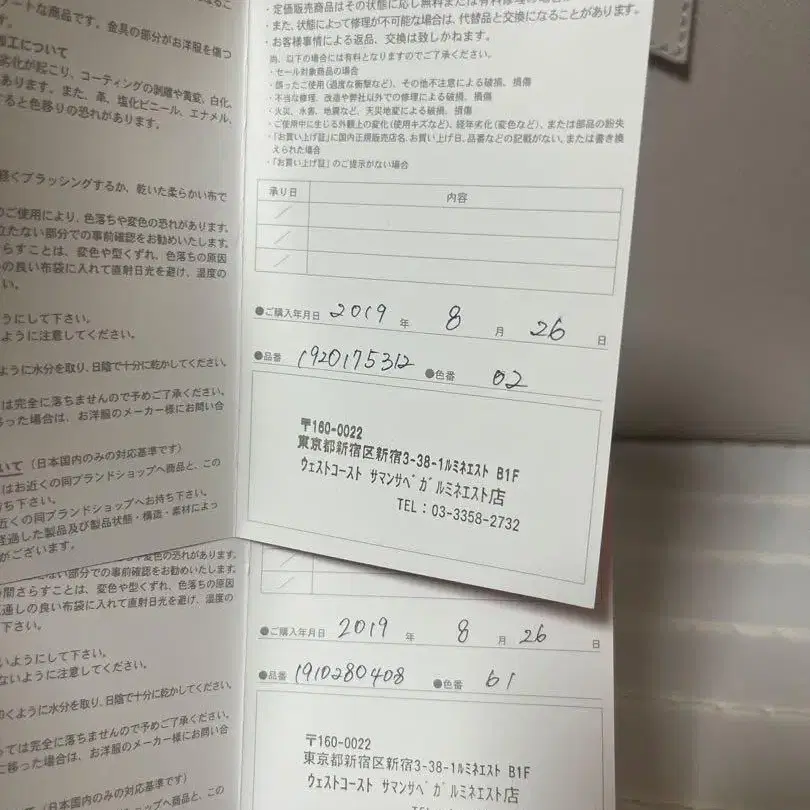 ゾートな商品です。金具の部分がお洋服を傷つ
す。
加工について
劣化が起こり、コーティングの剥離や黄変、白化、
あります。また、革、塩化ビニール、エナメル、
すると色移りの恐れがあります。
軽くブラッシングするか、乾いた柔らかい布で
のご使用により、色落ちや変色の恐れがあります。
立たない部分での事前確認をお勧めいたします。
らすことは、変色や型くずれ、色落ちの原因
の良い布袋に入れて直射日光を避け、湿度の
い。
うにして下さい。
ように注意してください。
ように水分を取り、日陰で十分に乾かしてください。
は完全に落ちませんので予めご了承ください。
移った場合は、お洋服のメーカー様にお問い合
いて（日本国内のみの対応基準です）
はお近くの同ブランドショップへ商品と、この
持ち下さい。
近くの同ブランドショップへお持ち下さい。
経過した製品及び製品状態・構造・素材によっ
がございます。
・定価販売商品はその状態に応じ無料または有料修理の場合が
・また、状態によって修理が不可能な場合は、代替品と交換になることがあります。
・お客様事情による返品、交換は致しかねます。
尚、以下の場合には有料となりますのでご了承ください。
・セール対象商品の場合
・誤ったご使用(過度な衝撃など)、その他不注意による破損、損傷
・不当な修理、改造や弊社以外での修理による破損、損傷
・火災、水害、地震など、天災地変による破損、損傷
・ご使用中に生じる外観上の変化(使用キズなど)、経年劣化(変色など)、または部品の紛失
・「お買い上げ証」に国内正規販売店名、お買い上げ日、品番などの記載がない、または書き換
えられた場合
・「お買い上げ証」のご提示がない場合
承り日 内容
／
／
／
●ご購入年月日 2019 年 8 月 26 日
●品番 1920175312 ●色番 02
〒160-0022
東京都新宿区新宿3-38-1ルミネエスト B1F
ウェストコースト サマンサベガルミネエスト店
TEL：03-3358-2732
変色の恐れがあります。
ない部分での事前確認をお勧めいたします。
間さらすことは、変色や型くずれ、色落ちの原因
通しの良い布袋に入れて直射日光を避け、湿度の
下さい。
いようにして下さい。
ないように注意してください。
叩くように水分を取り、日陰で十分に乾かしてください。
っては完全に落ちませんので予めご了承ください。
に移った場合は、お洋服のメーカー様にお問い合
（日本国内のみの対応基準です）
ショップへ商品と、この
／
●ご購入年月日 2019 年 8 月 26 日
●品番 1910280408 ●色番 61
〒160-0022
東京都新宿区新宿3-38-1ルミネエスト B1F
ウェストコースト サマンサベガルミネエスト店